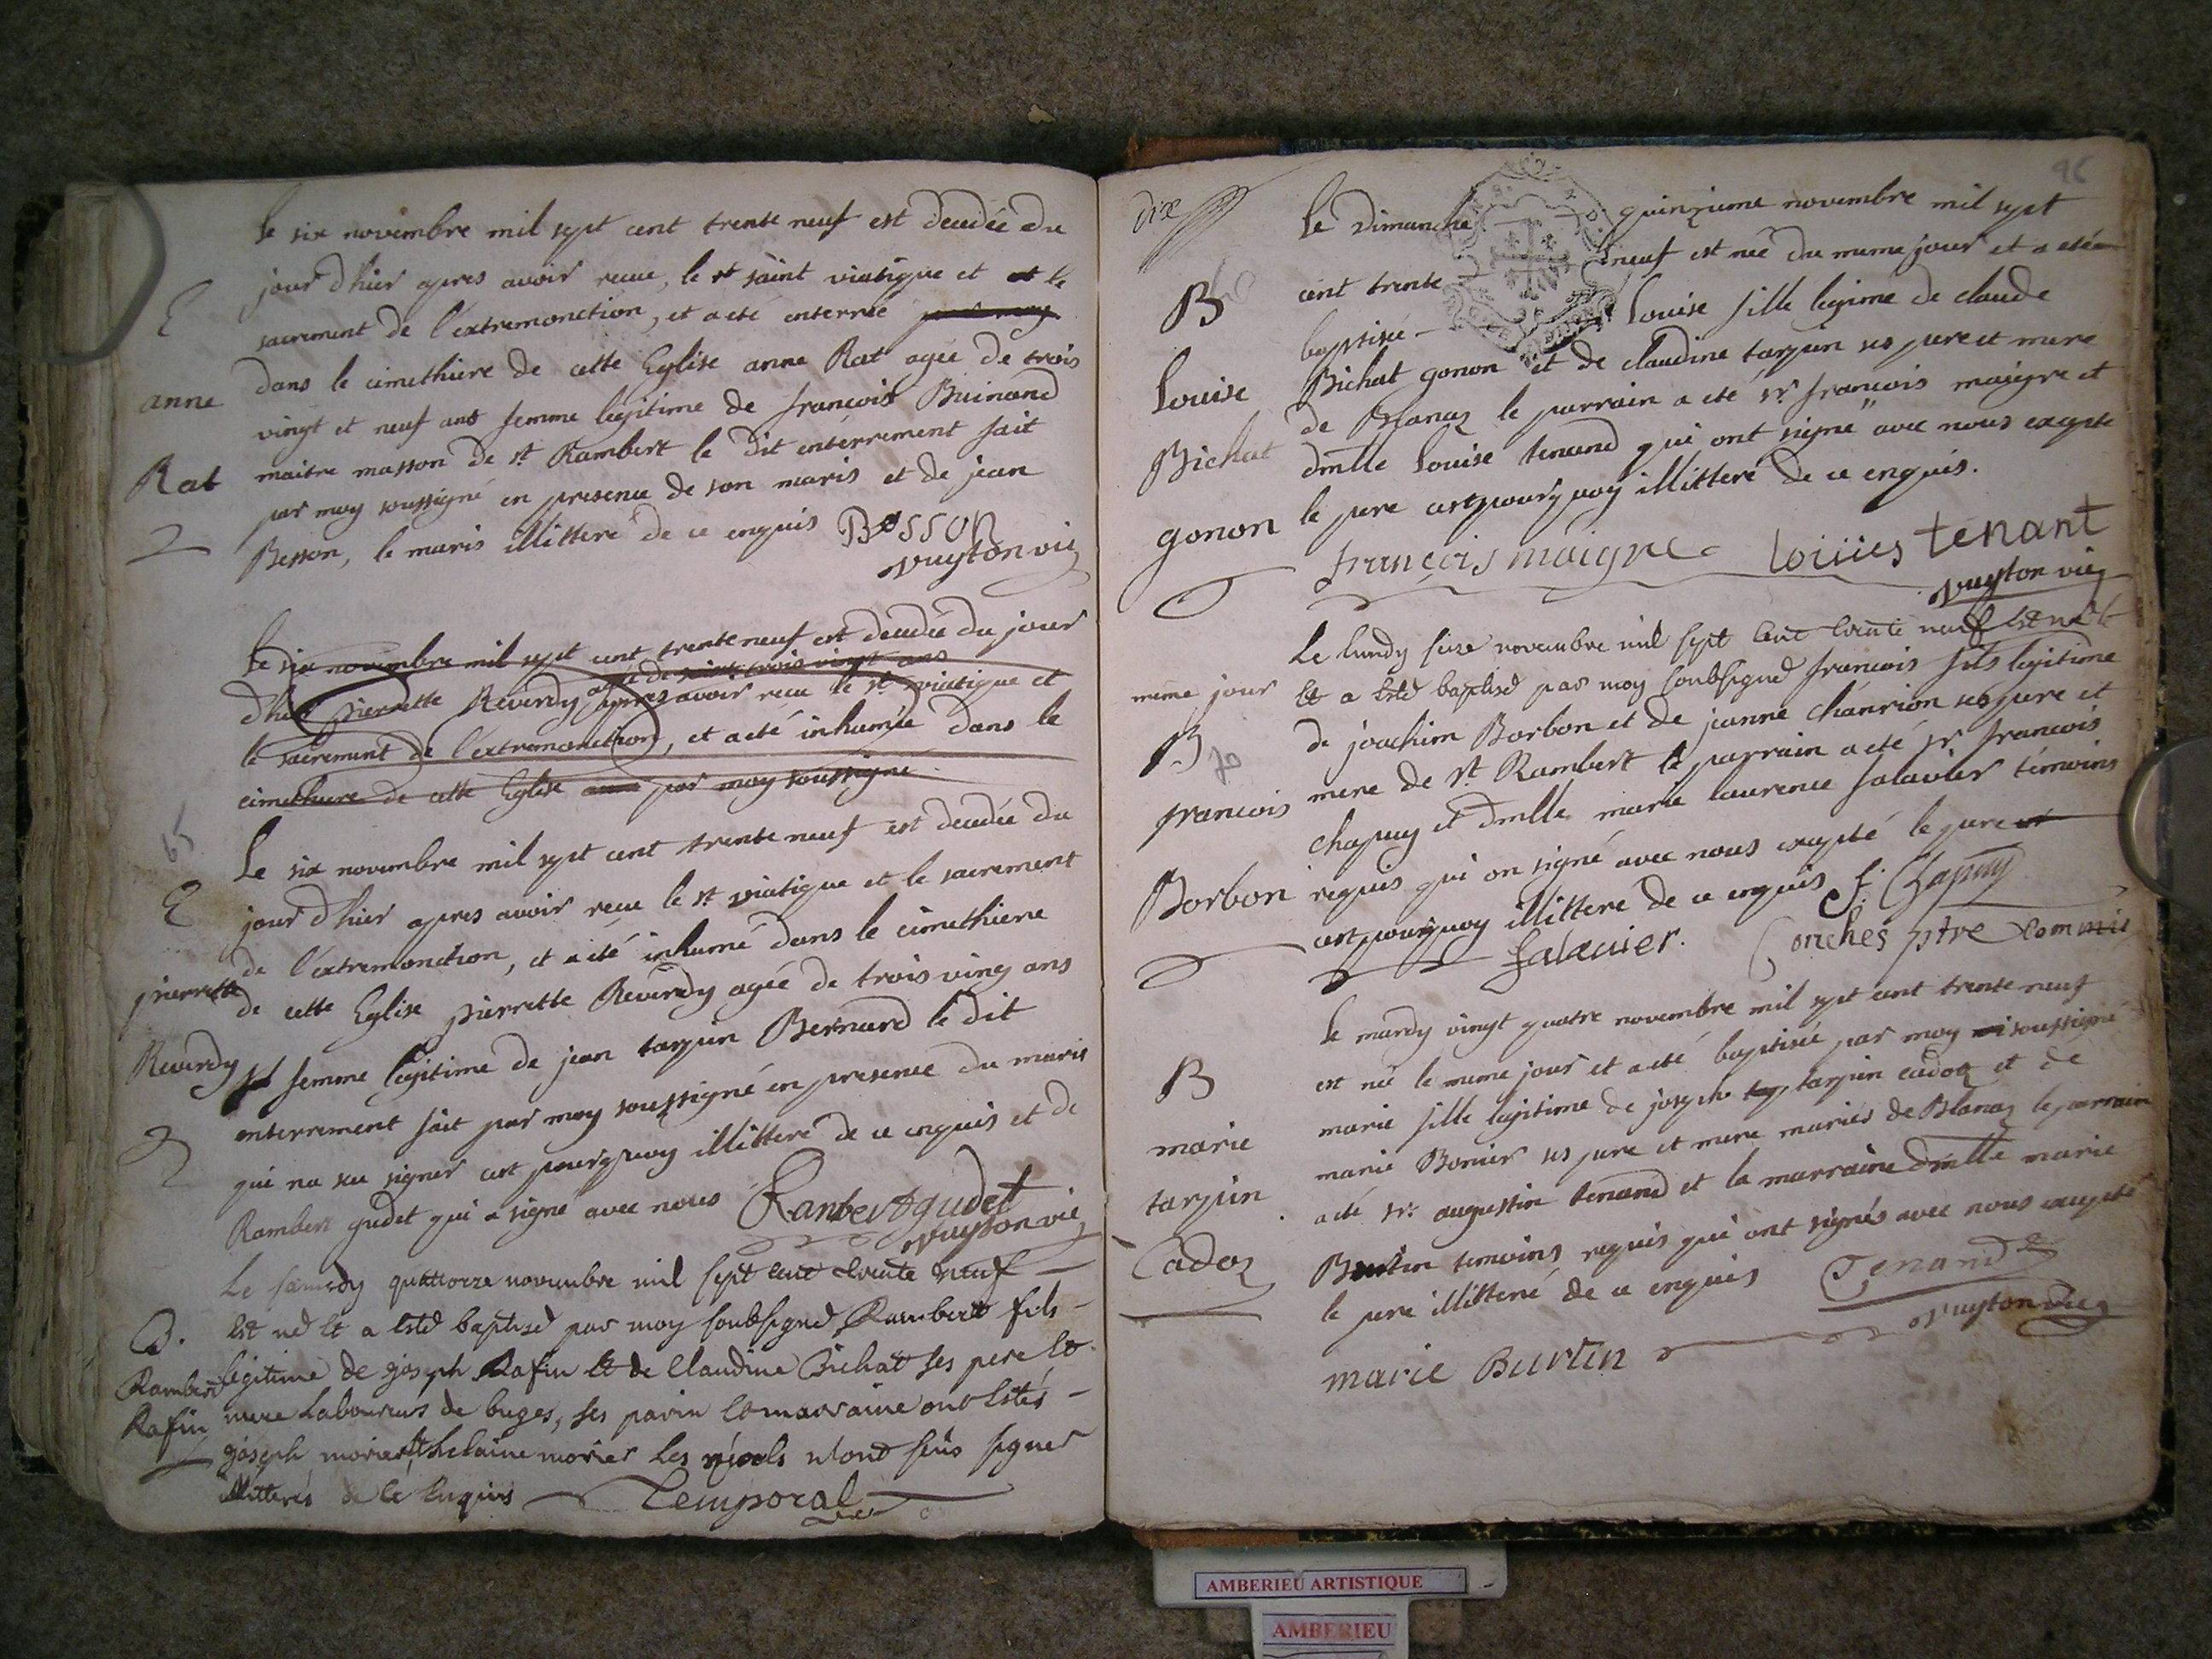 Le six novembre mil sept cent trente neuf est decedée du
E
jour d'hier apres avoir receu, le st saint viatique et et le
sacrement de l'extremonction, et a eté enterrée par moy
dans le cimethiere de cette Eglise anne Rat agée de trois
anne
vingt et neuf ans femme legitime de francois Buinand
Rat
maitre masson de st Rambert le dit enterrement fait
par moy soussigné en presence de son maris et de jean
Besson, le maris illitteré de ce enquis Besson
vuyton vic
Le six novembre mil sept cent trente neuf est decedée du jour
agée de trois vingt ans
d'hier pierrette Reverdy apres avoir receu le st viatique et
le sacrement de l'extremonction, et a eté inhumée dans le
cimethiere de cette Eglise par moy soussigné
65
Le six novembre mil sept cent trente neuf est decedée du
E
jour d'hier apres avoir receu le st viatique et le sacrement
de l'extremonction, et a eté inhumé dans le cimethiere
pierrette
de cette Eglise pierrette Reverdy agée de trois ving ans
Reverdy
femme legitime de jean tarpin Bernard le dit
enterrement fait par moy soussigné en presence du maris
qui na sceu signer cest pourquoy illitteré de ce enquis et de
Rambert gudet qui a signé avec nous Rambert gudet
vuyton vic
Le samedy quattorze novembre mil sept cent trente neuf
B.
Est né et a esté baptisé par moy soubsigné Rambert fils
Rambert
legitime de joseph Rafin et de Claudine Bichat ses pere et
Rafin
mere Laboureurs de buges, ses parin et marraine ont estés
joseph morier et helaine morier les quels n'ont seus signer
illitterés de ce enquis Temporal
96
dix
Le Dimanche quinzieme novembre mil sept
cent trente neuf est née du meme jour et a eté
B
baptisée louise fille legime de claude
Louise
Bichat gonon et de claudine tarpin ses pere et mere
de Blanaz le parrain a eté sr francois maigre et
Bichat
dmlle Louise tenand qui ont signé avec nous excepte
gonon
le pere cest pourquoy illitteré de ce enquis.
francois maigre Loüies tenant
vuyton vic
Le lundy seze novembre mil sept cent trente neuf est né le
meme jour
et a esté baptisé par moy soubsigné francois fils legitime
B 70
de joachim Borbon et de jeanne chanrion ses pere et
mere de st Rambert le parrain a eté sr francois
francois
chapuy et dmlle marie laurence falavier témoins
Borbon
requis qui on signé avec nous excepté le pere et
cest pourquoy illitteré de ce enquis f. Chapuy
falauier. Conches ptre commis
Le mardy vingt quatre novembre mil sept cent trente neuf
B
est née le meme jour et a eté baptisée par moy soussigné
marie
marie fille legitime de joseph tarpin cadoz et de
marie Bonier ses pere et mere mariés de Blanaz le parrain
tarpin
a eté sr. augustin tenand et la marraine dmlle marie
Cadoz
Burtin temoins requis qui ont signés avec nous excepté
le pere illitteré de ce enquis Tenand
vuyton vic
marie Burtin
AMBERIEU ARTISTIQUE
AMBERIEU